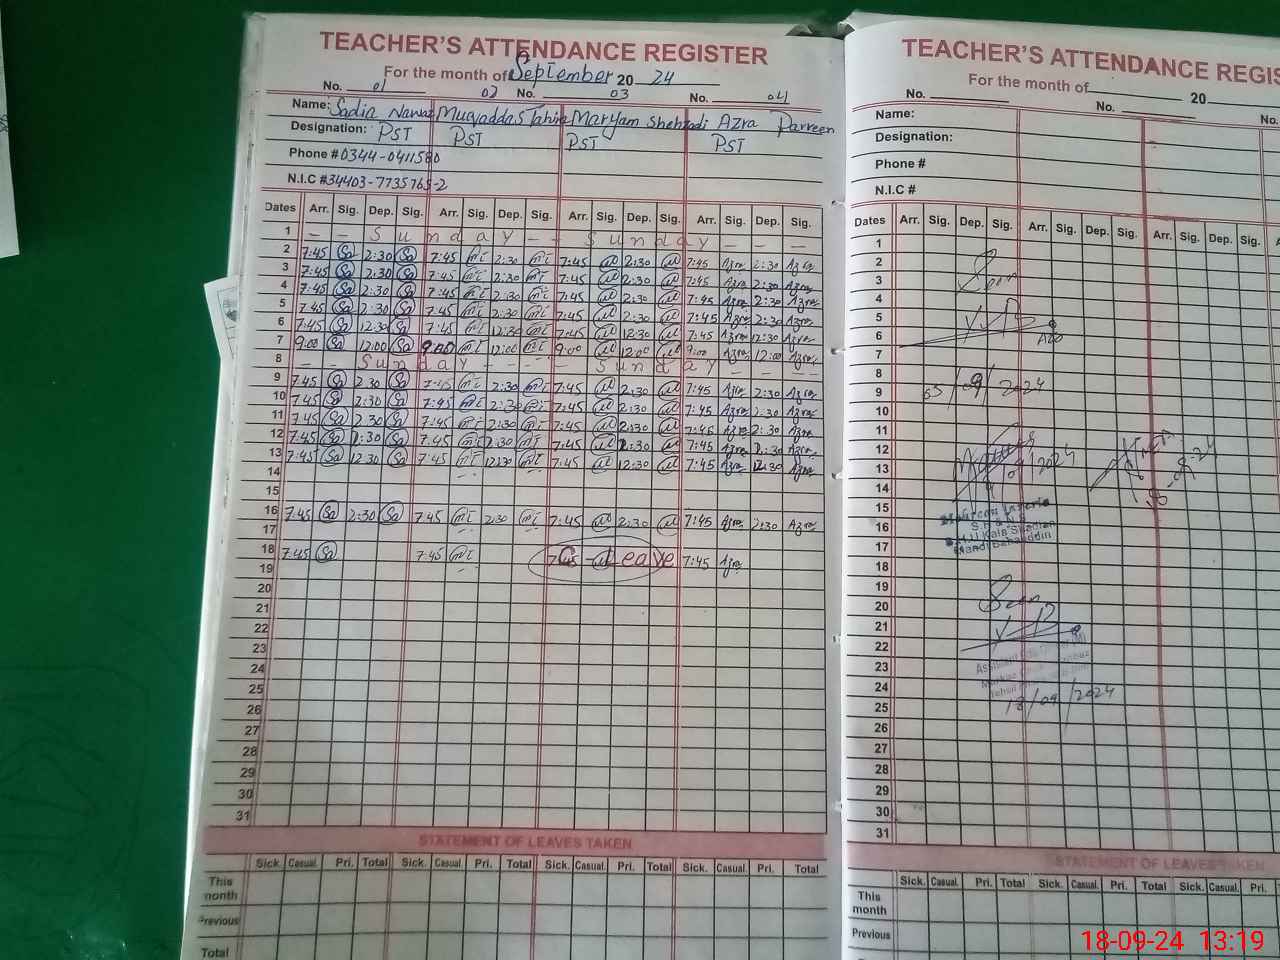 TEACHER'S ATTENDANCE REGISTER
For the month of September 20 24
No. 01 02 No. 03 No. 04
Name: Sadia Nawaz Muqaddas Tahira Maryam Shehzadi Azra Parveen
Designation: PST PST PST PST
Phone # 0344-0411580
N.I.C # 34403-7735765-2
Dates Arr. Sig. Dep. Sig. Arr. Sig. Dep. Sig. Arr. Sig. Dep. Sig. Arr. Sig. Dep. Sig.
1 - - Sunday - - Sunday - - -
2 7:45 Sa 2:30 Sa 7:45 mt 2:30 mt 7:45 2:30 7:45 Azra 2:30 Azra
3 7:45 Sa 2:30 Sa 7:45 mt 2:30 mt 7:45 2:30 7:45 Azra 2:30 Azra
4 7:45 Sa 2:30 Sa 7:45 mt 2:30 mt 7:45 2:30 7:45 Azra 2:30 Azra
5 7:45 Sa 2:30 Sa 7:45 mt 2:30 mt 7:45 2:30 7:45 Azra 2:30 Azra
6 7:45 Sa 12:30 Sa 7:45 mt 12:30 mt 7:45 12:30 7:45 Azra 12:30 Azra
7 9:00 Sa 12:00 Sa 9:00 mt 12:00 mt 9:00 12:00 9:00 Azra 12:00 Azra
8 - - Sunday - - - - Sunday - - - -
9 7:45 Sa 2:30 Sa 7:45 mt 2:30 mt 7:45 2:30 7:45 Azra 2:30 Azra
10 7:45 Sa 2:30 Sa 7:45 mt 2:30 mt 7:45 2:30 7:45 Azra 2:30 Azra
11 7:45 Sa 2:30 Sa 7:45 mt 2:30 mt 7:45 2:30 7:45 Azra 2:30 Azra
12 7:45 Sa 2:30 Sa 7:45 mt 2:30 mt 7:45 2:30 7:45 Azra 2:30 Azra
13 7:45 Sa 12:30 Sa 7:45 mt 12:30 mt 7:45 12:30 7:45 Azra 12:30 Azra
14
15
16 7:45 Sa 2:30 Sa 7:45 mt 2:30 mt 7:45 2:30 7:45 Azra 2:30 Azra
17
18 7:45 Sa 7:45 mt 7:45 C-Leave 7:45 Azra
19
20
21
22
23
24
25
26
27
28
29
30
31
STATEMENT OF LEAVES TAKEN
Sick. Casual. Pri. Total Sick. Casual. Pri. Total Sick. Casual. Pri. Total Sick. Casual. Pri. Total
This month
Previous
Total
TEACHER'S ATTENDANCE REGIS
For the month of 20
No. No. No.
Name:
Designation:
Phone #
N.I.C #
Dates Arr. Sig. Dep. Sig. Arr. Sig. Dep. Sig. Arr. Sig. Dep. Sig. A
1
2
3 Seen
4
5
6 AEO
7
8
9 05/09/2024
10
11
12
13 /09/2024
14
15
16
17 Mandi Bahauddin
18
19
20 Seen
21
22
23
24
25 18/09/2024
26
27
28
29
30
31
STATEMENT OF LEAVES TAKEN
Sick. Casual. Pri. Total Sick. Casual. Pri. Total Sick. Casual. Pri.
This month
Previous
18-09-24 13:19